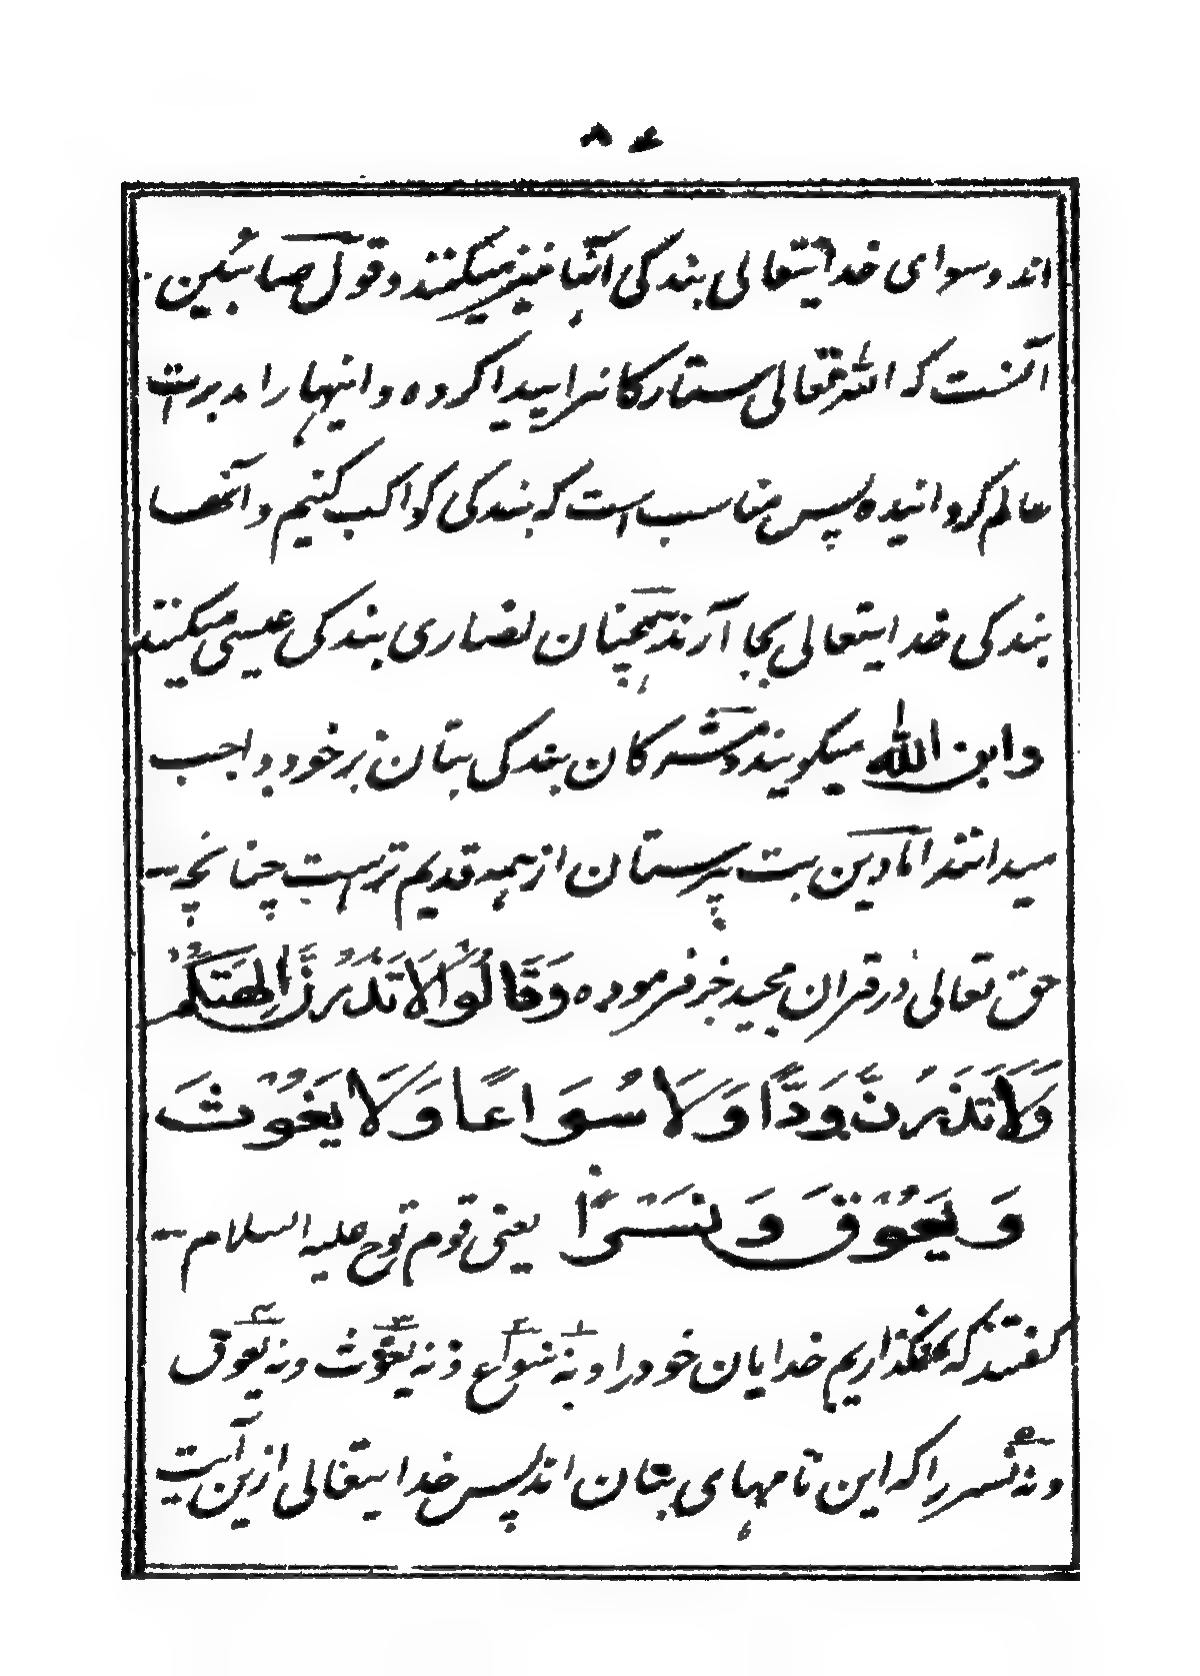 ۸۴
اند و سوای خدایتعالی بندکی آنها نیز میکنند و قول صابئین
آنست که الله تعالی ستارکانرا پیدا کرده و اینها را مدبرات
عالم کردانیده پس مناسب است که بندکی کواکب کنیم و آنها
بندکی خدایتعالی بجا آرند همچنان نصاری بندکی عیسی میکنند
و ابن الله میکویند و مشرکان بندکی بتان بر خود واجب
میدانند اما دین بت پرستان از همه قدیم ترست چنانچه
حق تعالی در قران مجید خبر فرموده وَقَالُوْا لَا تَذَرُنَّ اٰلِهَتَكُمْ
وَلَا تَذَرُنَّ وَدًّا وَلَا سُوَاعًا وَلَا يَغُوْثَ
وَيَعُوْقَ وَنَسْرًا یعنی قوم نوح علیه السلام
کفتند که نکذاریم خدایان خود را و نه سواع و نه یغوث و نه یعوق
و نه نسر را که این نامهای بتان اند پس خدایتعالی ازین آیت